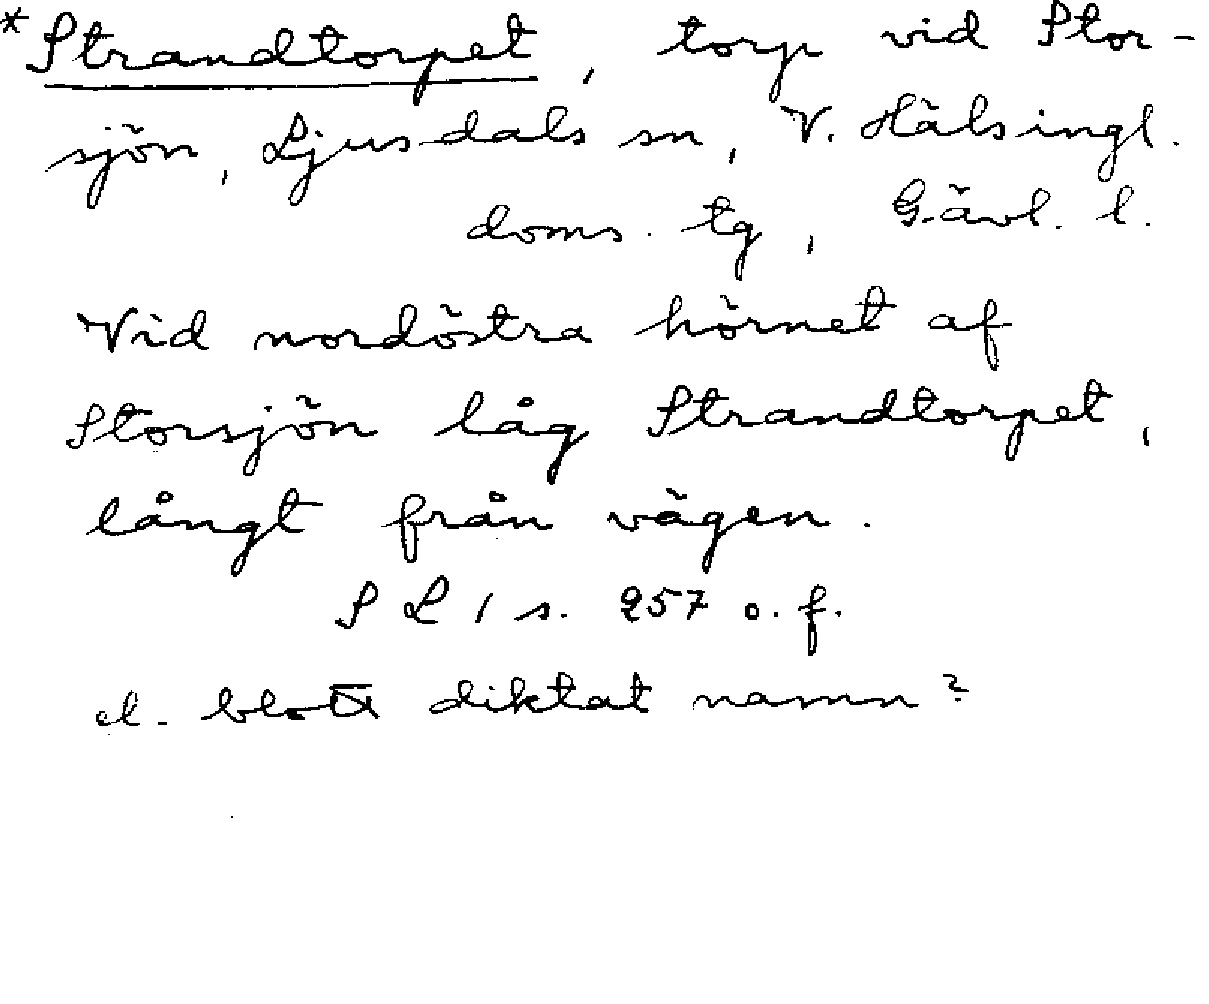 *Strandtorpet, torp vid Stor-
sjön, Ljusdals sn, V. Hälsingl.
doms. tg, Gävl. l.
Vid nordöstra hörnet af
Storsjön låg Strandtorpet,
långt från vägen.
S L 1 s. 257 o. f.
el. blott diktat namn?